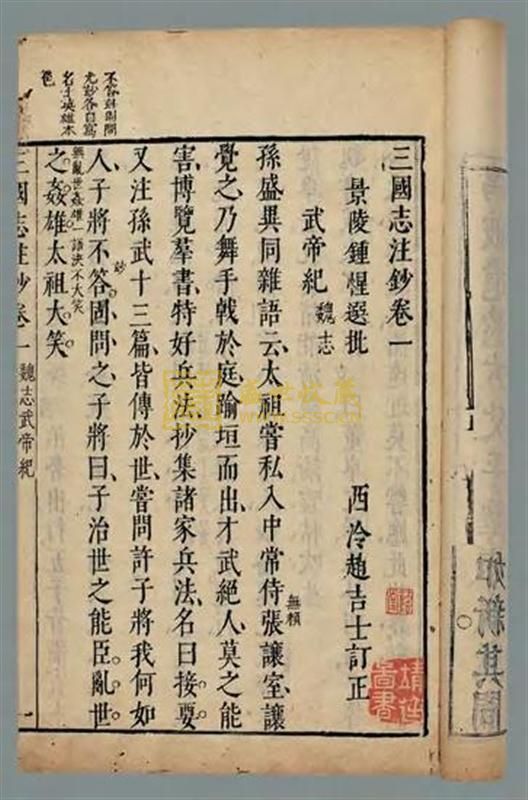 三國志注鈔卷一
景陵鍾惺選批 西泠趙吉士訂正
武帝紀 魏志
孫盛異同雜語云太祖嘗私入中常侍張讓室讓
無賴
覺之乃舞手戟於庭踰垣而出才武絕人莫之能
害博覽羣書特好兵法抄集諸家兵法名曰接要
又注孫武十三篇皆傳於世嘗問許子將我何如
妙
人子將不答固問之子將曰子治世之能臣亂世
之姦雄太祖大笑
無亂世姦雄一語決不大笑
名士英雄本
色
三國志注鈔卷一 魏志武帝紀 一
靖廷
圖書
盛世收藏
www.sssc.cn
如新其間